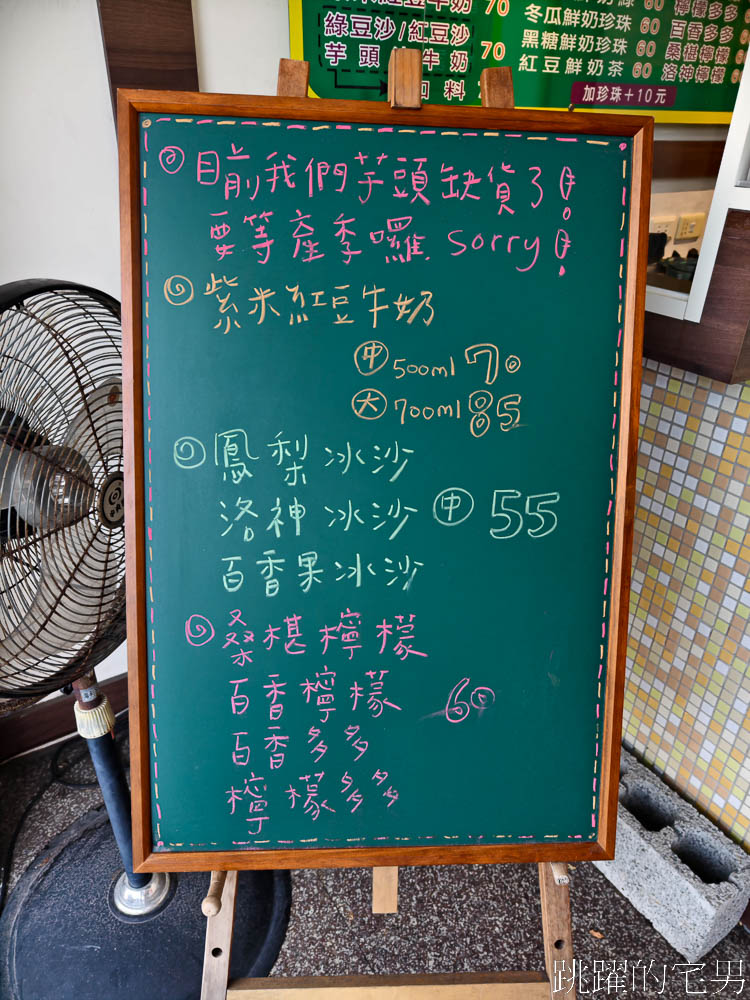 紅豆牛奶 70
綠豆沙/紅豆沙
芋頭 牛奶 70
料
60 檸檬多多
冬瓜鮮奶珍珠 60 百香多多
黑糖鮮奶珍珠 60 桑椹檸檬
紅豆鮮奶茶 60 洛神檸檬
加珍珠+10元
目前我們芋頭缺貨了!
要等產季囉. sorry!
紫米紅豆牛奶
中 500ml 70
大 700ml 85
鳳梨冰沙
洛神冰沙 中 55
百香果冰沙
桑椹檸檬
百香檸檬 60
百香多多
檸檬多多
跳躍的宅男